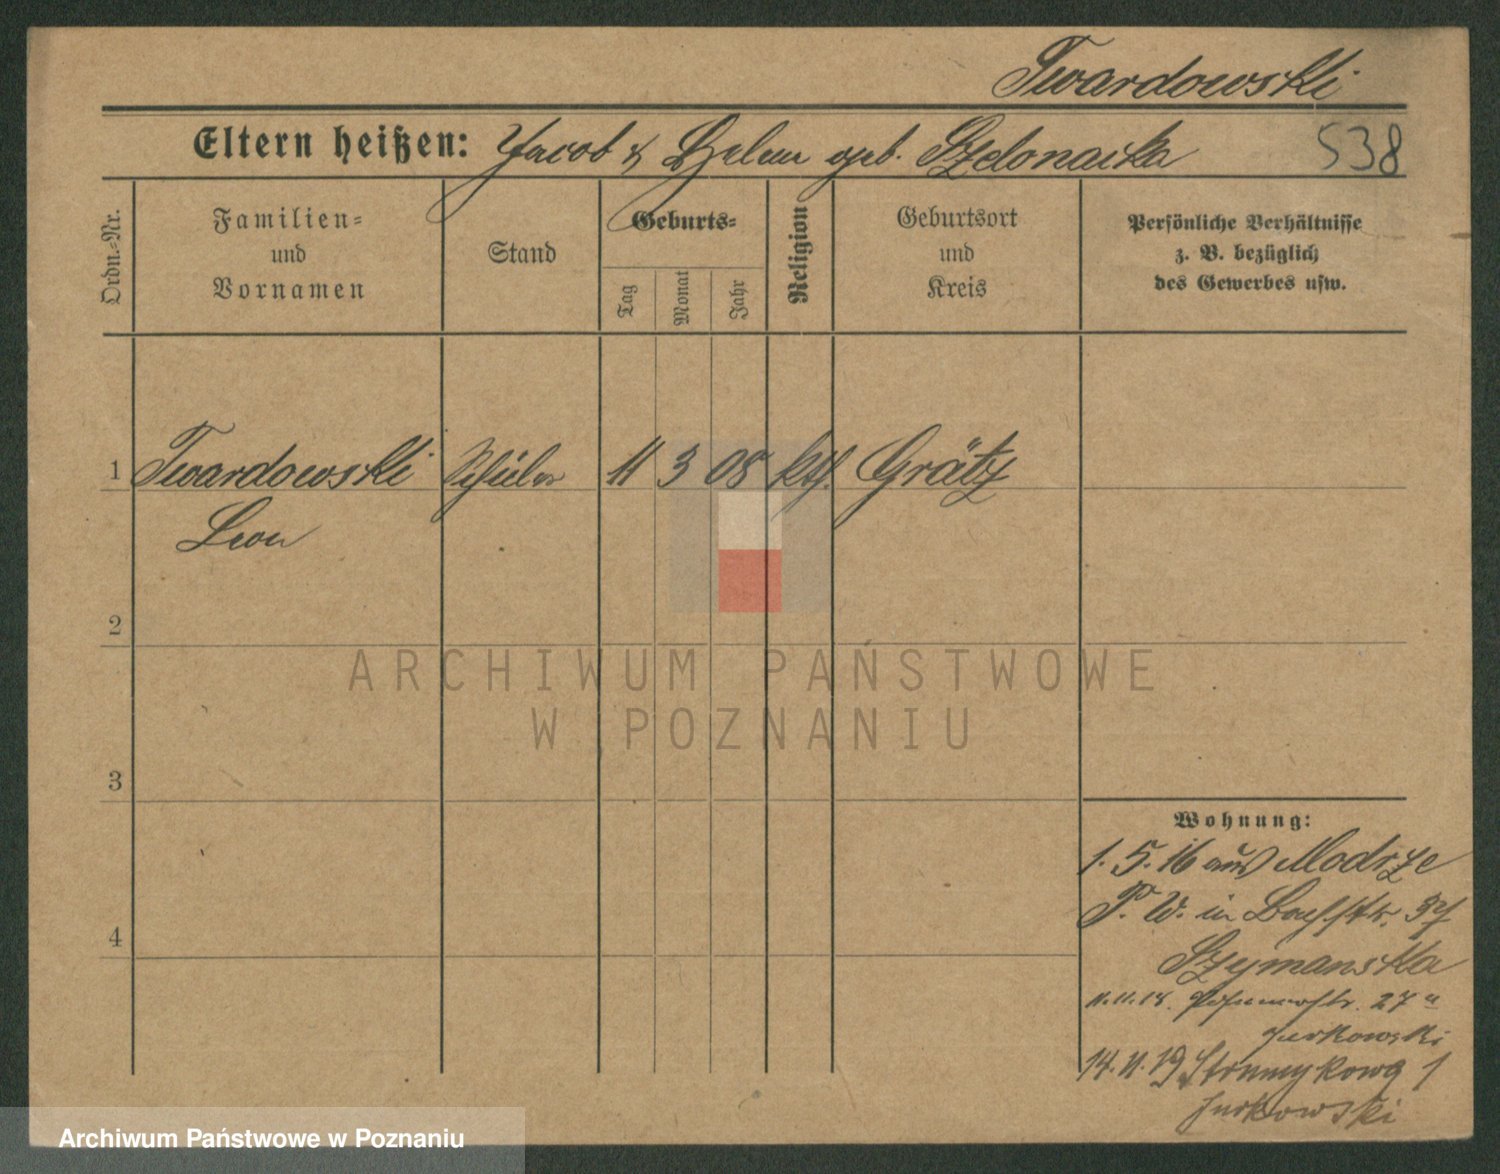 Twardowski
Eltern heißen: Jacob & Helene geb. Szelonacka
538
Ordn.-Nr.
Familien-
und
Vornamen
Stand
Geburts-
Tag
Monat
Jahr
Religion
Geburtsort
und
Kreis
Persönliche Verhältnisse
z. B. bezüglich
des Gewerbes usw.
1 Twardowski Schüler 11 3 08 kth. Grätz
Leon
2
ARCHIWUM PAŃSTWOWE
W POZNANIU
3
4
Wohnung:
1. 5. 16 aus Modrze
P. W. in Bachstr. 37
Szymanska
11.11.18. 27
Jurkowski
14. 11. 19 Strumykowa 1
Jurkowski
Archiwum Państwowe w Poznaniu